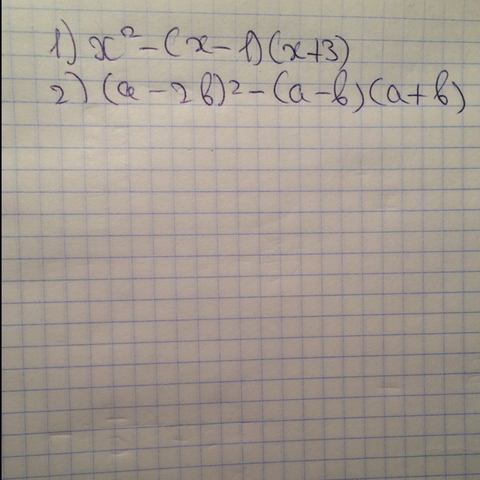 1) x² - (x - 1)(x+3)
2) (a - 2b)² - (a - b)(a + b)